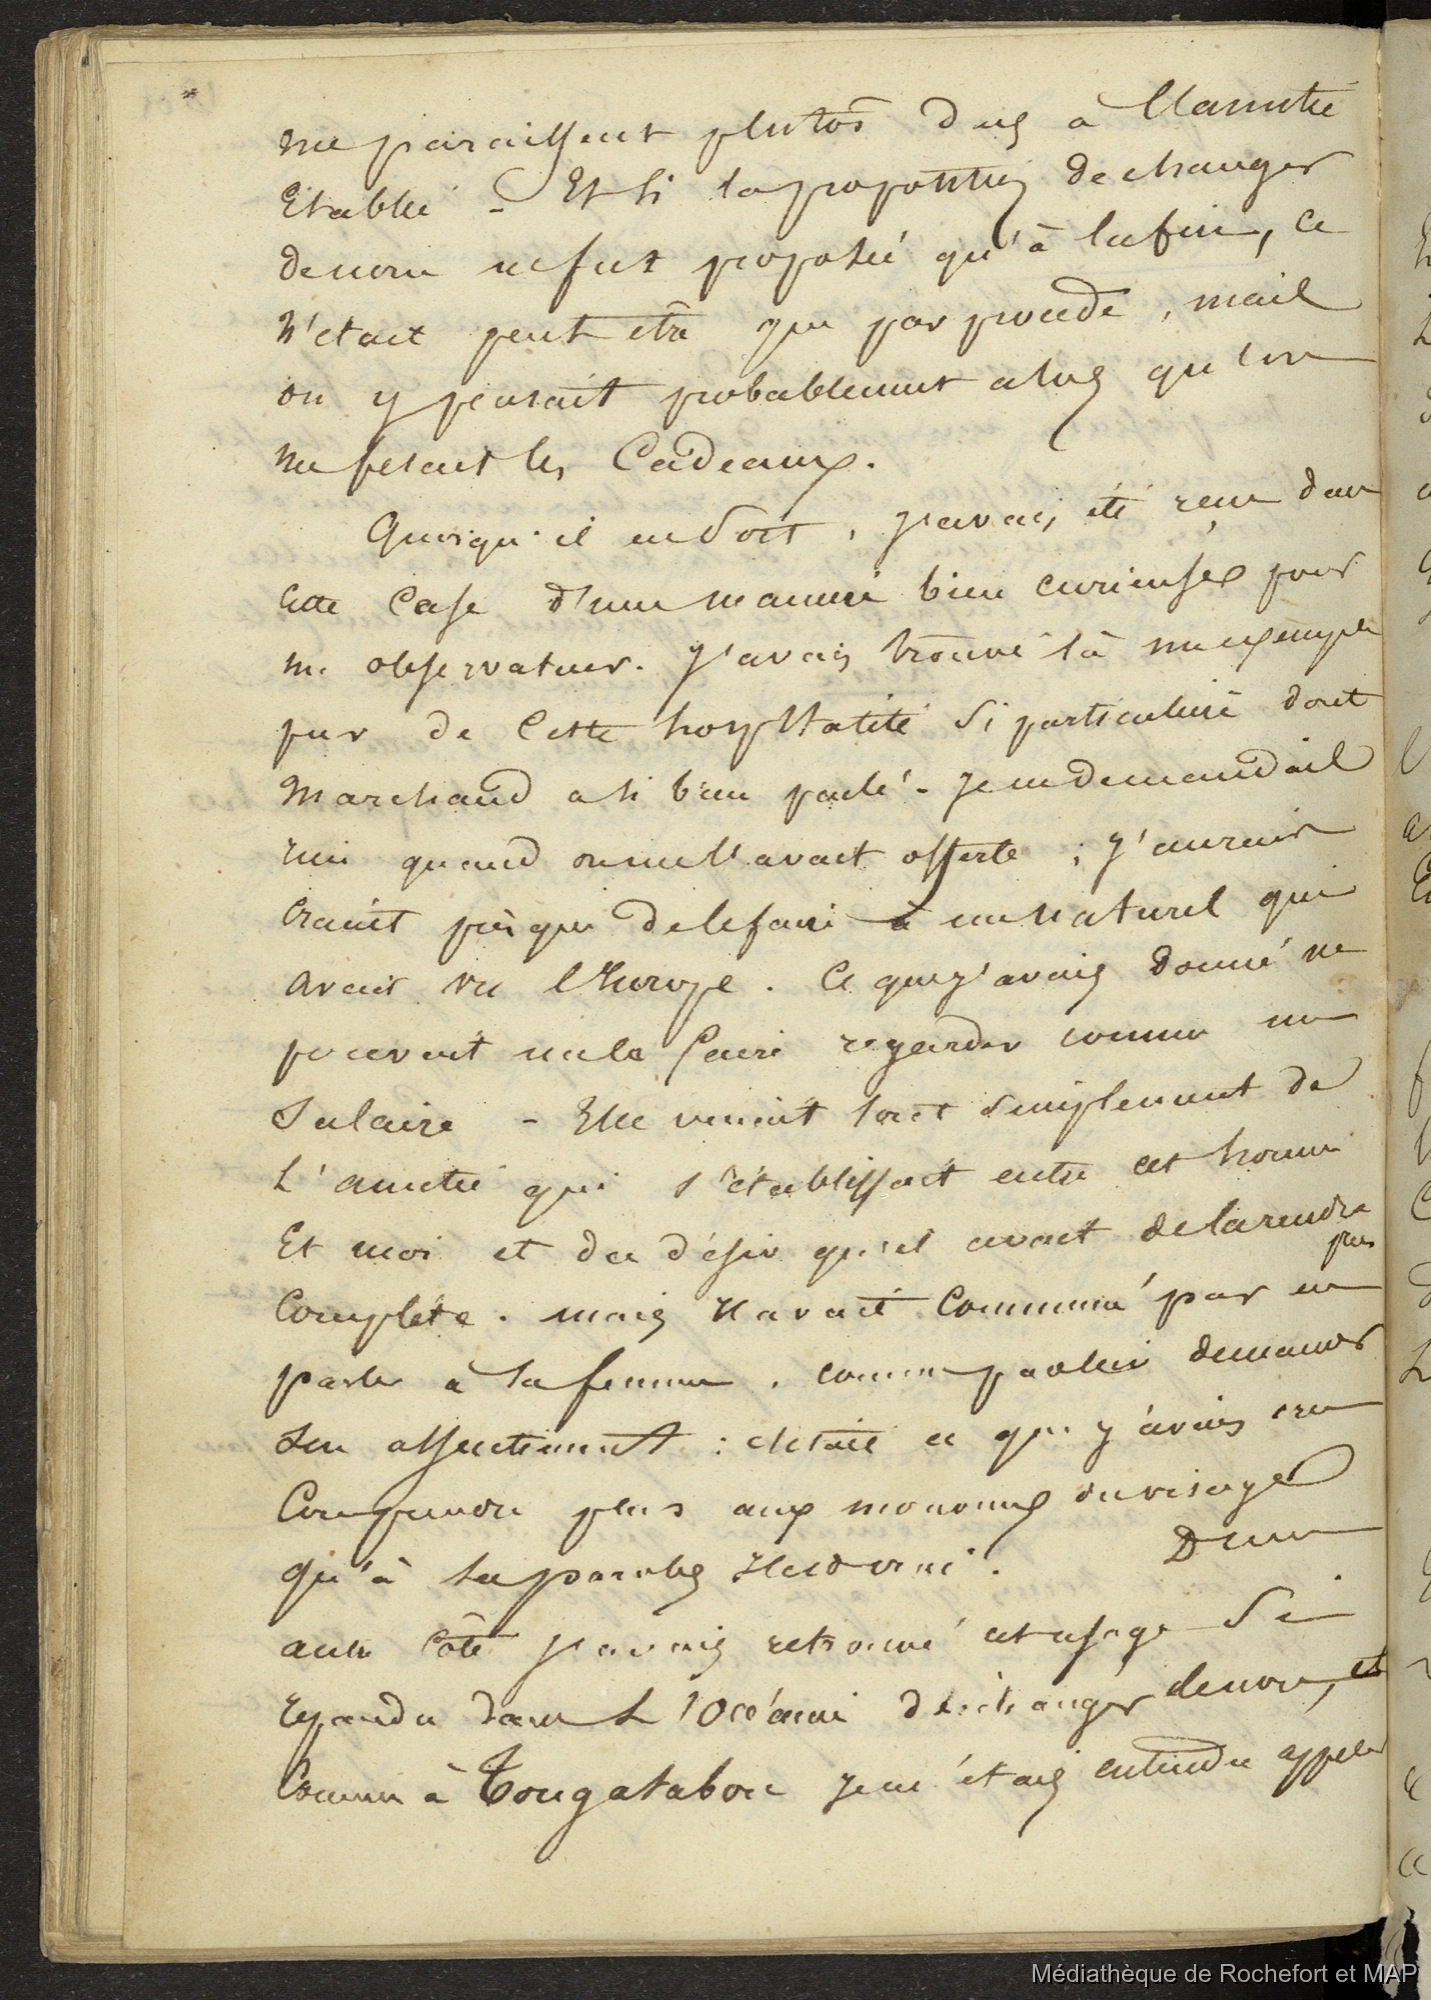 me paraissent plutôt dus à l'amitié
Etablie - Et si la proposition de changer
de nom ne fut proposée qu'à la fin, ce
n'était peut être que par procédé, mais
on y pensait probablement alors qu'on
me fesait les Cadeaux.
Quoiqu'il en soit, j'avais été reçu dans
cette Case d'une manière bien curieuse pour
un observateur. J'avais trouvé là un exemple
pur de Cette hospitalité si particulière dont
Marchand a si bien parlé - Je ne demandais
rien quand on me l'avait offerte ; j'aurais
craint presque de le faire à un naturel qui
avait vu l'Europe. Ce que j'avais donné ne
pouvait me la faire regarder comme un
Salaire - Elle venait tout simplement de
L'amitié qui s'établissait entre cet homme
Et moi et du désir qu'il avait de la rendre
plus
Complète. mais Il avait Commencé par en
parler à sa femme, comme pour lui demander
son assentiment : c'était ce que j'avais cru
Comprendre plus aux mouvements du visage
qu'à ses paroles
D'un
autre Côté j'avais retrouvé cet usage si
répandu dans L'Océanie d'échanger de nom, et
Comme à Tongatabou je m'étais entendu appeler
Médiathèque de Rochefort et MAP